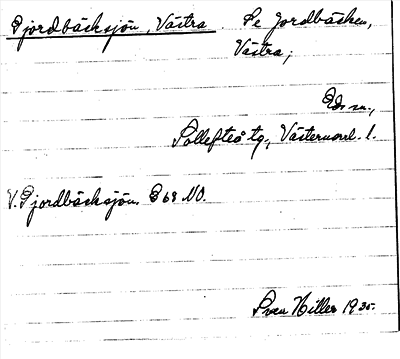 Gjordbäcksjön, Västra. Se Jordbäcken,
Västra,
Eds sn.,
Sollefteå tg., Västernorrl. l.
V. Gjordbäcksjön. E 68 NO.
Sven Hiller 1935.